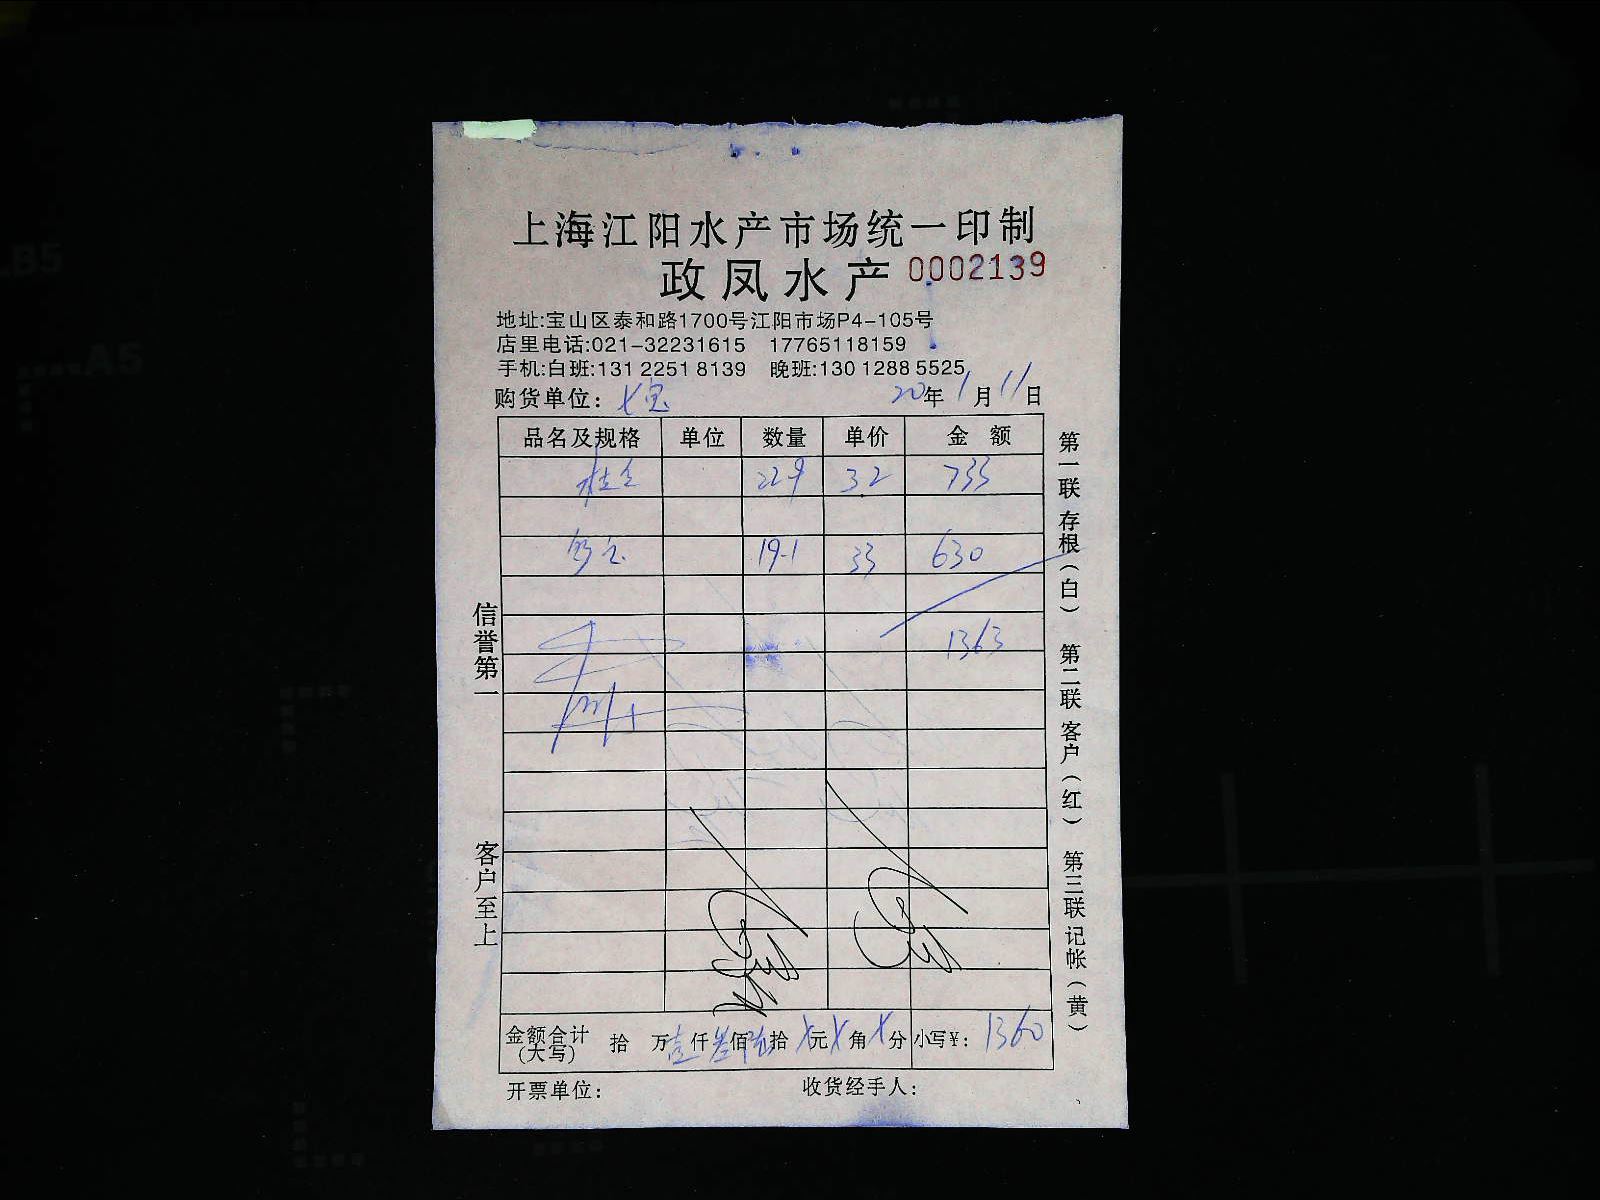 上海江阳水产市场统一印制
政凤水产 0002139
地址:宝山区泰和路1700号江阳市场P4-105号
店里电话:021-32231615 17765118159
手机:白班:131 2251 8139 晚班:130 1288 5525
购货单位: 七宝 20年1月11日
品名及规格 单位 数量 单价 金额
桂仝 229 32 733
19-1 33 630
1363
金额合计(大写) 拾 万壹仟叁佰陆拾 元 角 分 小写¥: 1360
开票单位: 收货经手人:
信誉第一
客户至上
第一联 存根(白) 第二联 客户(红) 第三联 记帐(黄)